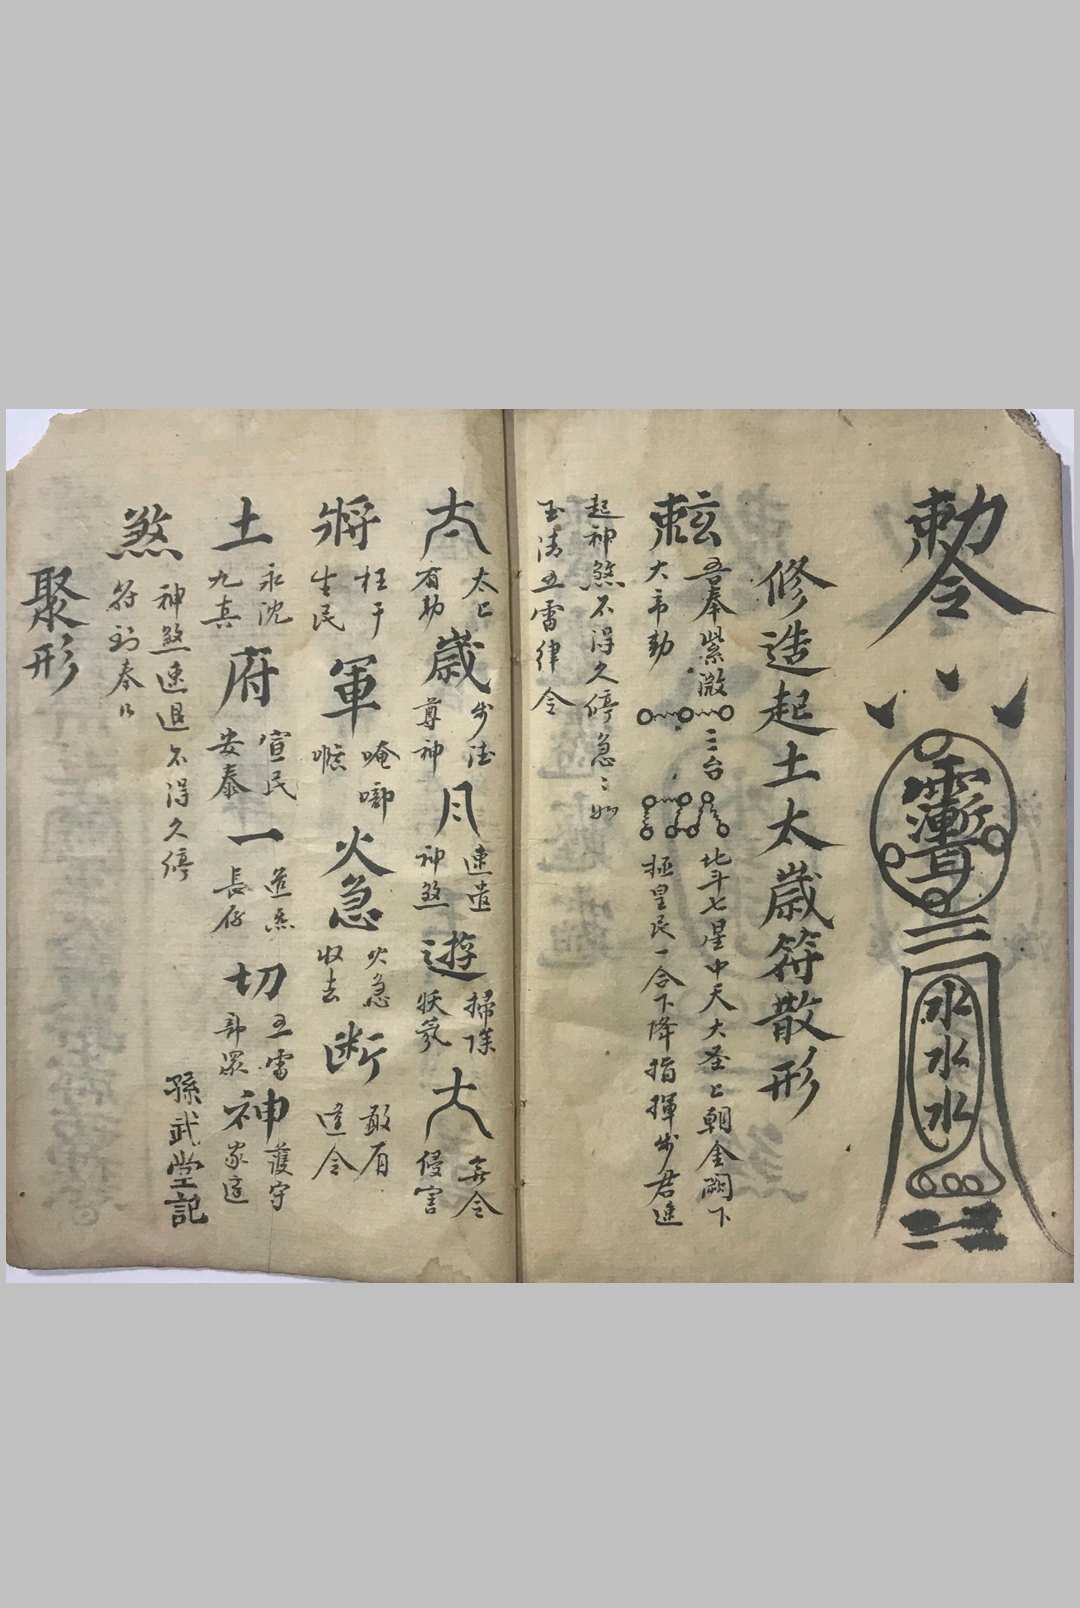 勅令
水水水
修造起土太歲符散形
吾奉紫微 三台 北斗七星中天大圣上朝金闕下
大帝勅 極皇民一合下降指揮步君速
起神煞不得久停急〻如
玉清五雷律令
太 太上有勅 歲 步法尊神 月 速遣神煞 遊 掃除妖氛 大 無令侵害
將 枉于生民 軍 唵啷㗭 火急 火急收去 断 敢有違令
土 永沉九真 府 宣民安泰 一 長存 切 五雷部眾 神 護守家庭
煞 神煞速退不得久停
符到奉行
孫武堂記
聚形